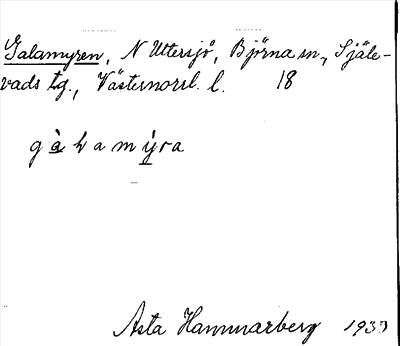 Galamyren, N Uttersjö, Björna sn, Själe-
vads tg., Västernorrl. l. 18
gàlamỳra
Asta Hammarberg